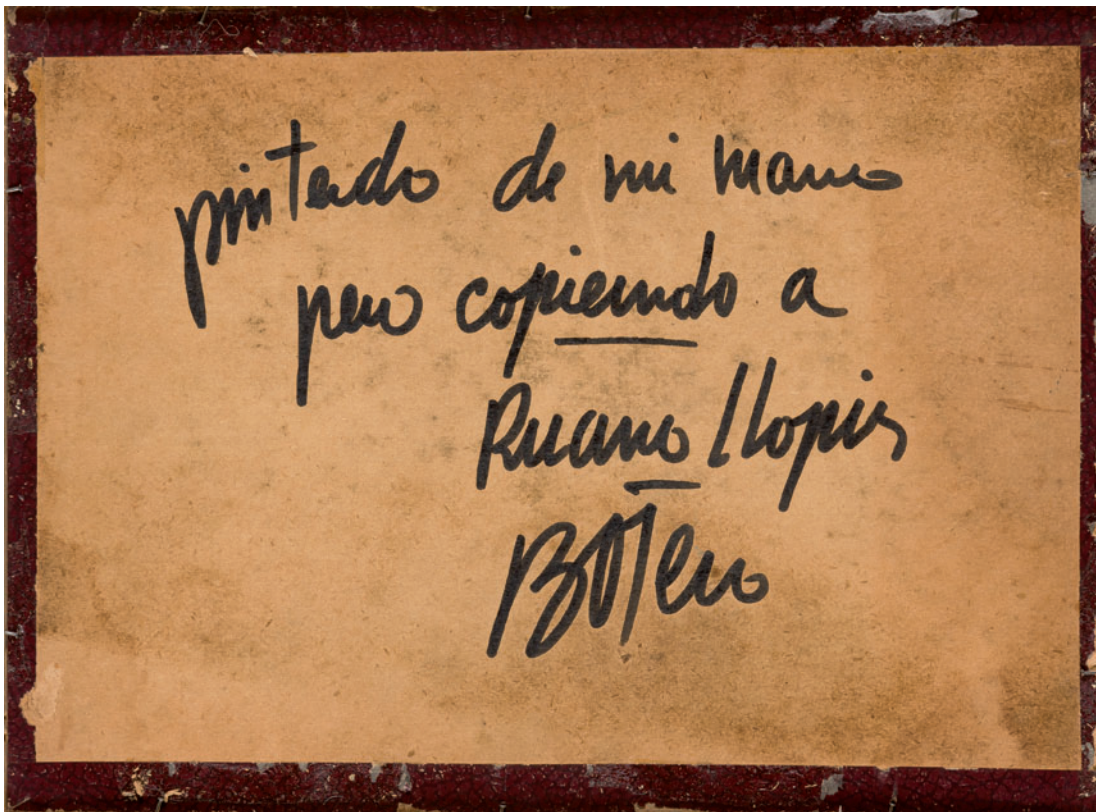 pintado de mi mano
pero copiando a
Ruano Llopis
Botero